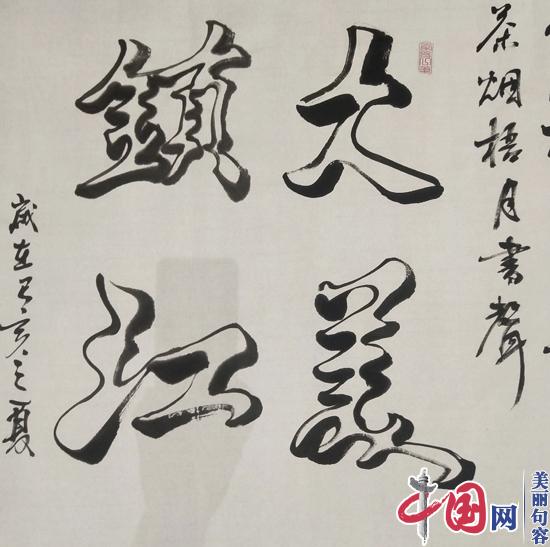 茶烟梧月書聲
大美
鎮江
歲在己亥之夏
中国网
美丽句容